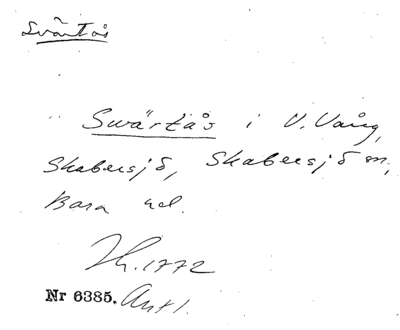 Svärtås
Swärtås i V. Vång,
Skabersjö, Skabersjö sn,
Bara hd.
Zh. 1772
Nr 6385. Ant 1.